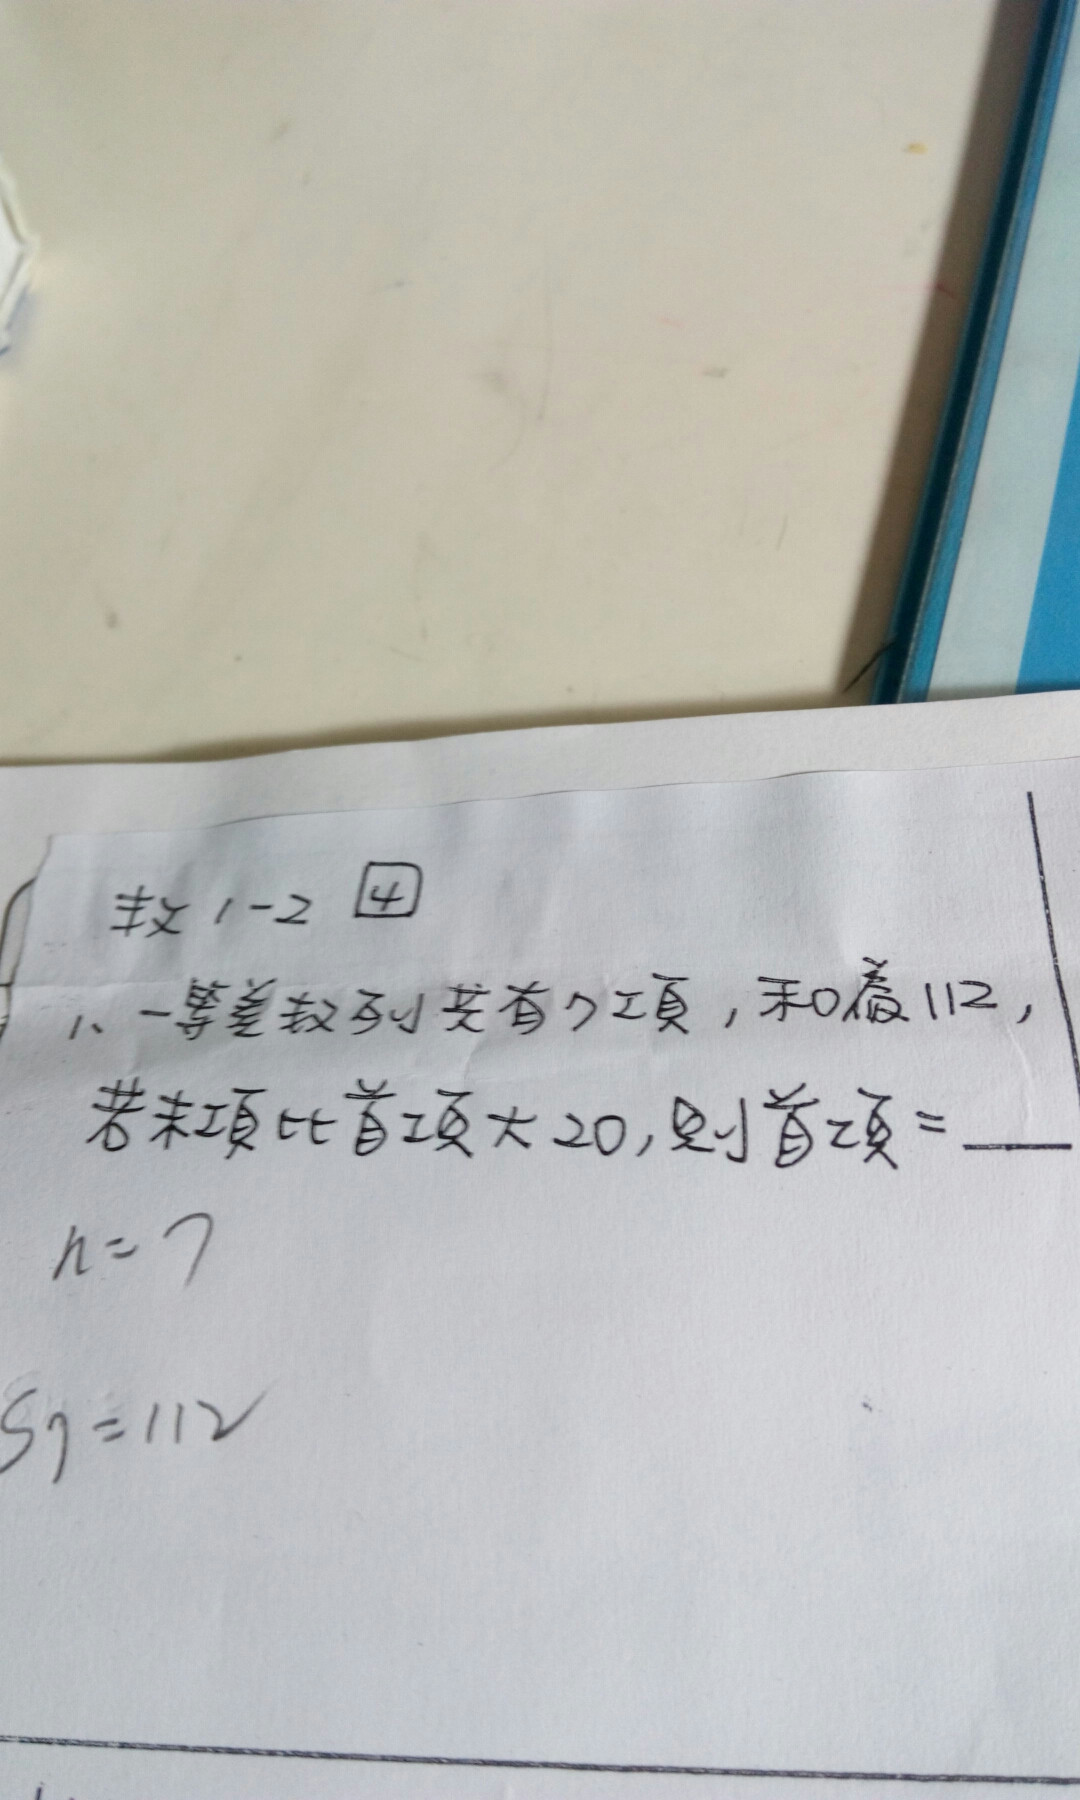 数1-2 4
1、一等差数列共有7項，和為112，
若末項比首項大20，則首項=___
n=7
S7=112